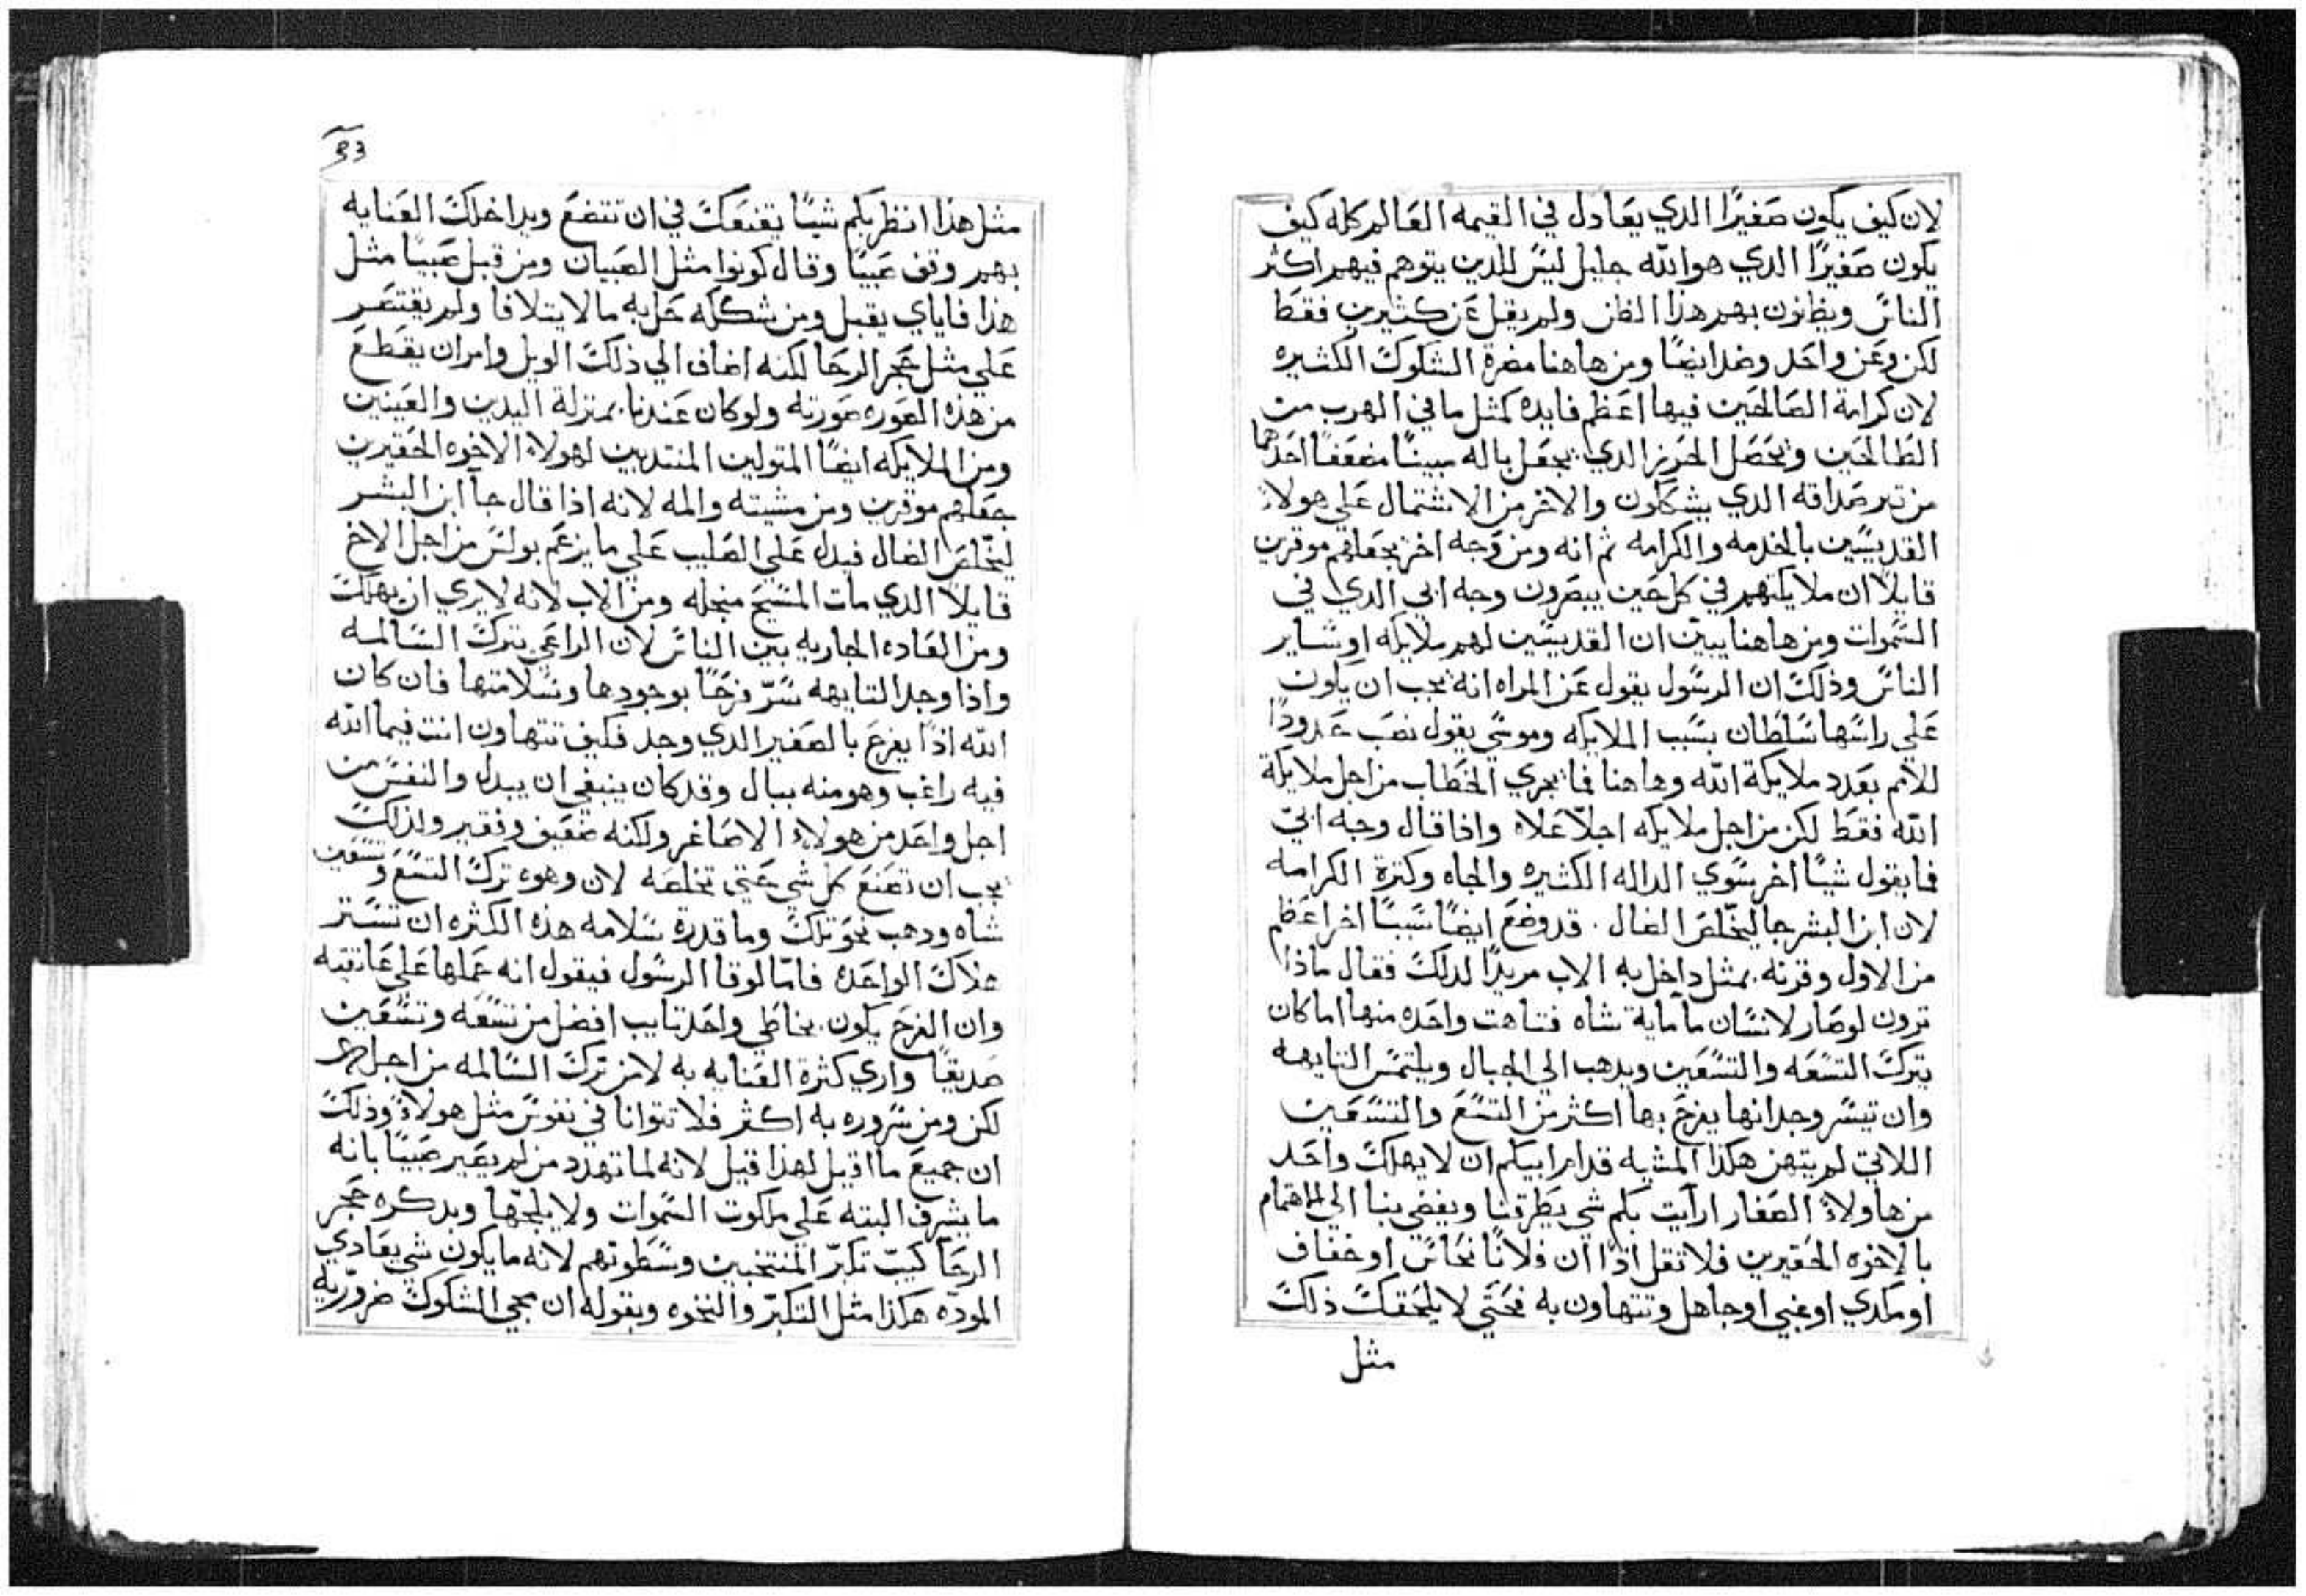 لان كيف يكون صغيرًا الدي يعادل في القيمه العالم كله كيف
يكون صغيرًا الدي هو الله جليل ليس للدين يتوهم فيهم اكثر
الناس ويظنون بهم هذا الظن ولم يقل عن كثيرين فقط
لكن وعن واحد وضد ايضًا ومن هاهنا مضرة الشكوك الكثيره
لان كرامة الصالحين فيها اعظم فايده كمثل ما في الهرب من
الطالحين وتحصل الحريز الدي يجعل باله مبينًا مضعفًا احدهما
من تبر صداقه الدي يشككون والاخر من الاشتمال علي هولاء
القديسين بالخدمه والكرامه ثم انه ومن وجه اخر يجعلهم موقرين
قايلًا ان ملايكتهم في كل حين يبصرون وجه ابي الدي في
السموات ومن هاهنا يبين ان القديسين لهم ملايكه او ساير
الناس وذلك ان الرسول يقول عن المراه انه يجب ان يكون
علي راسها سلطان بسبب الملايكه وموسي يقول نصب حدودًا
للامم بعدد ملايكة الله وهاهنا فما يجري الخطاب من اجل ملايكة
الله فقط لكن من اجل ملايكه اجلّا علاه واذا قال وجه ابي
فما يقول شيًا اخر سوي الداله الكثيره والجاه وكثرة الكرامه
لان ابن البشر جا ليخلص الضال . قد وضع ايضًا سببًا اخر اعظم
من الاول وقرنه بمثل داخل به الاب مريدًا لدلك فقال ماذا
ترون لو صار لانسان ما ماية شاه فتاهت واحده منها اما كان
يترك التسعه والتسعين ويدهب الي الجبال ويلتمس التايهه
وان تيسر وجدانها يفرح بها اكثر من التسع والتسعين
اللاتي لم يتهن هكذا المشيه قدام ابيكم ان لا يهلك واحد
من هاولاء الصغار ارايت بكم شي يطرقنا ويفضي بنا الي الاهتمام
بالاخوه الحقيرين فلا تقل اذًا ان فلانًا نحاس او خفاف
او مكدي او غبي او جاهل وتتهاون به فحتي لا يلحقك ذلك
مثل
33
مثل هذا انظر بكم شيًا يقنعك في ان تتضع ويداخلك العنايه
بهم وقف صبيًا وقال كونوا مثل الصبيان ومن قبل صبيًا مثل
هذا فاياي يقبل ومن شككه حل به ما لا يتلافا ولم يقتصر
علي مثل حجر الرحا لكنه اضاف الي ذلك الويل وامر ان يقطع
من هذه الصوره صورته ولو كان عندنا بمنزلة اليدين والعينين
ومن الملايكه ايضًا المتولين المنتدبين لهولاء الاخوه الحقيرين
جعلهم موقرين ومن مشيته والمه لانه اذا قال جا ابن البشر
ليخلص الضال فيدل علي الصليب علي ما يزعم بولس من اجل الاخ
قايلًا الدي مات المسيح منجله ومن الاب لانه لا يري ان يهلك
ومن العاده الجاريه بين الناس لان الراعي يترك السالمه
واذا وجد التايهه سرّ فرحًا بوجودها وسلامتها فان كان
الله اذًا يفرح بالصغير الدي وجد فكيف تتهاون انت فيما الله
فيه راغب وهو منه ببال وقد كان ينبغي ان يبدل والنفس من
اجل واحد من هولاء الاصاغر ولكنه ضعيف وفقير ولذلك
يجب ان تصنع كل شي حتي تخلصه لان وهوه ترك التسع وتسعين
شاه ودهب نحو تلك وما قدرة سلامه هذه الكثره ان تستر
هلاك الواحده فامّا لوقا الرسول فيقول انه حملها علي عاتقيه
وان الفرح يكون بخاطي واحد تايب افضل من تسعه وتسعين
صديقًا واري كثرة العنايه به لا من ترك السالمه من اجل
لكن ومن سروره به اكثر فلا تتوانا في نفوس مثل هولاء وذلك
ان جميع ما اقيل لهذا قيل لانه لما تهدد من لم يصير صبيًا بانه
ما يشرف البته علي ملكوت السموات ولا يلجها وبدكره حجر
الرحا كيت تكبّر المنتخبين وسطوتهم لانه ما يكون شي يعادي
المودّه هكذا مثل التكبّر والنخوه وبقوله ان مجي الشكوك ضروريه